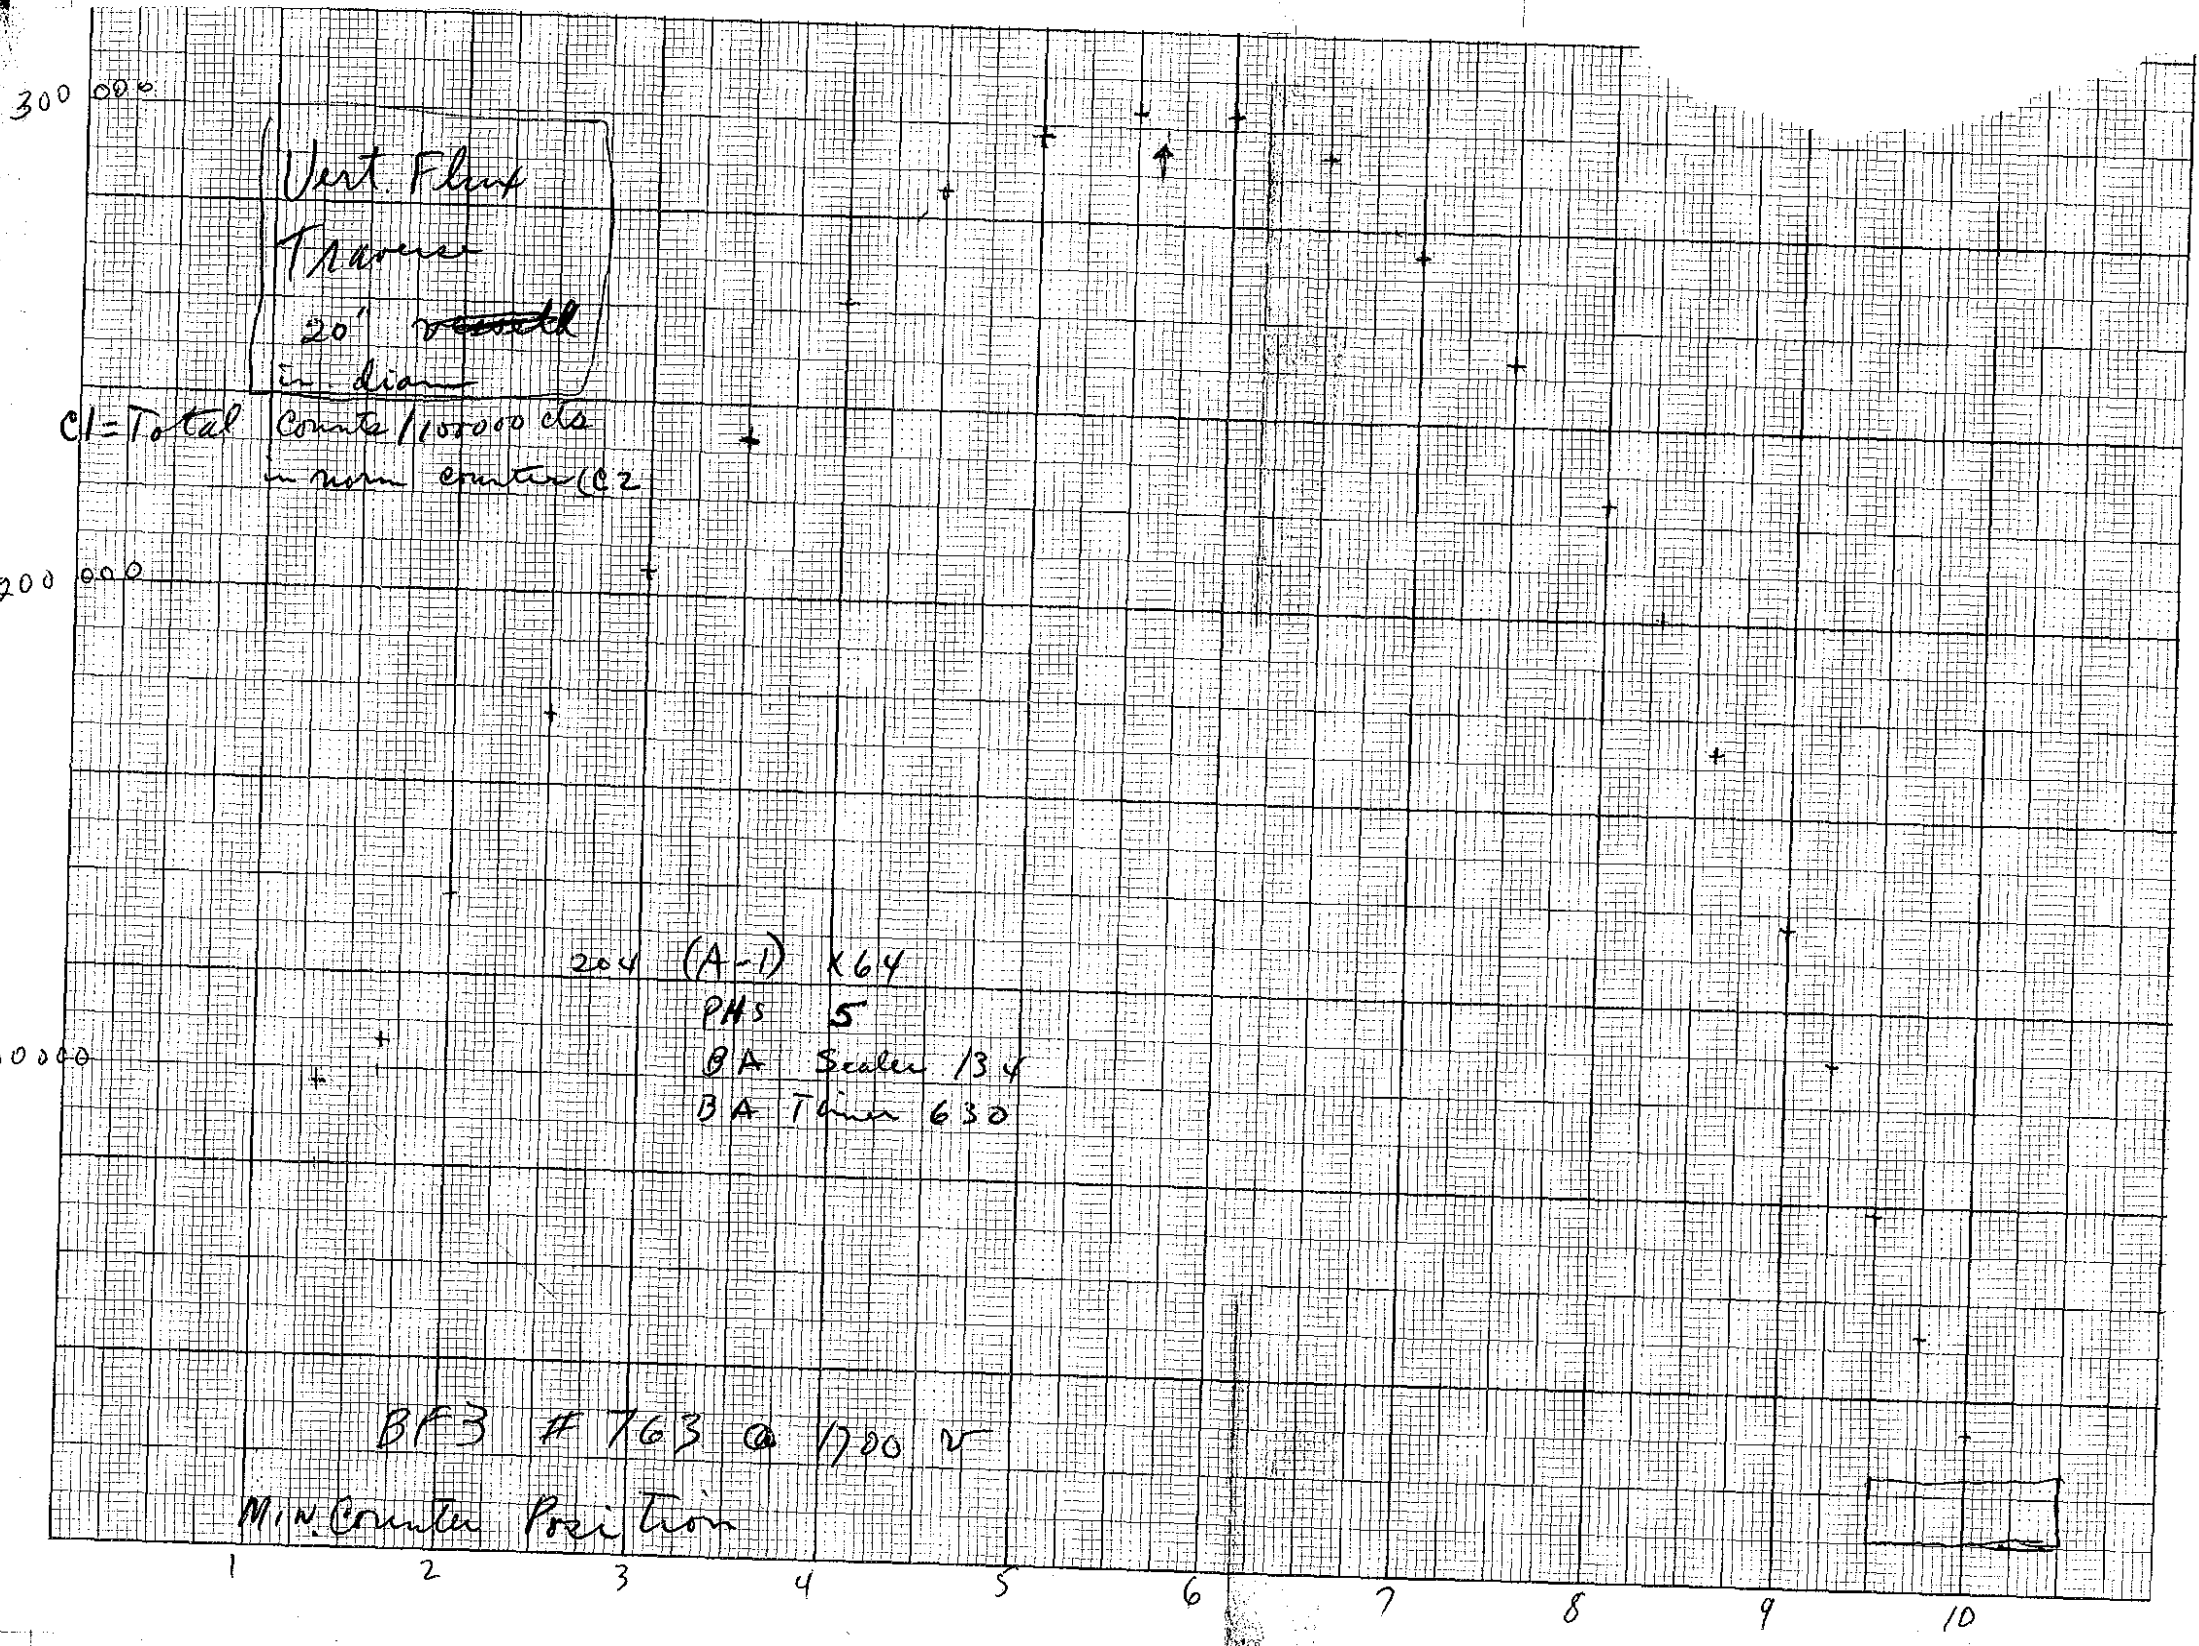 300 000
Vert. Flux
Traverse
20"
in diam
C1 = Total Counts/100000 cts
in norm counter (C2
200 000
204 (A-1) x64
PHS 5
BA Scaler 134
BA Timer 630
00000
BF3 # 763 @ 1700 v
Min. Counter Position
1 2 3 4 5 6 7 8 9 10